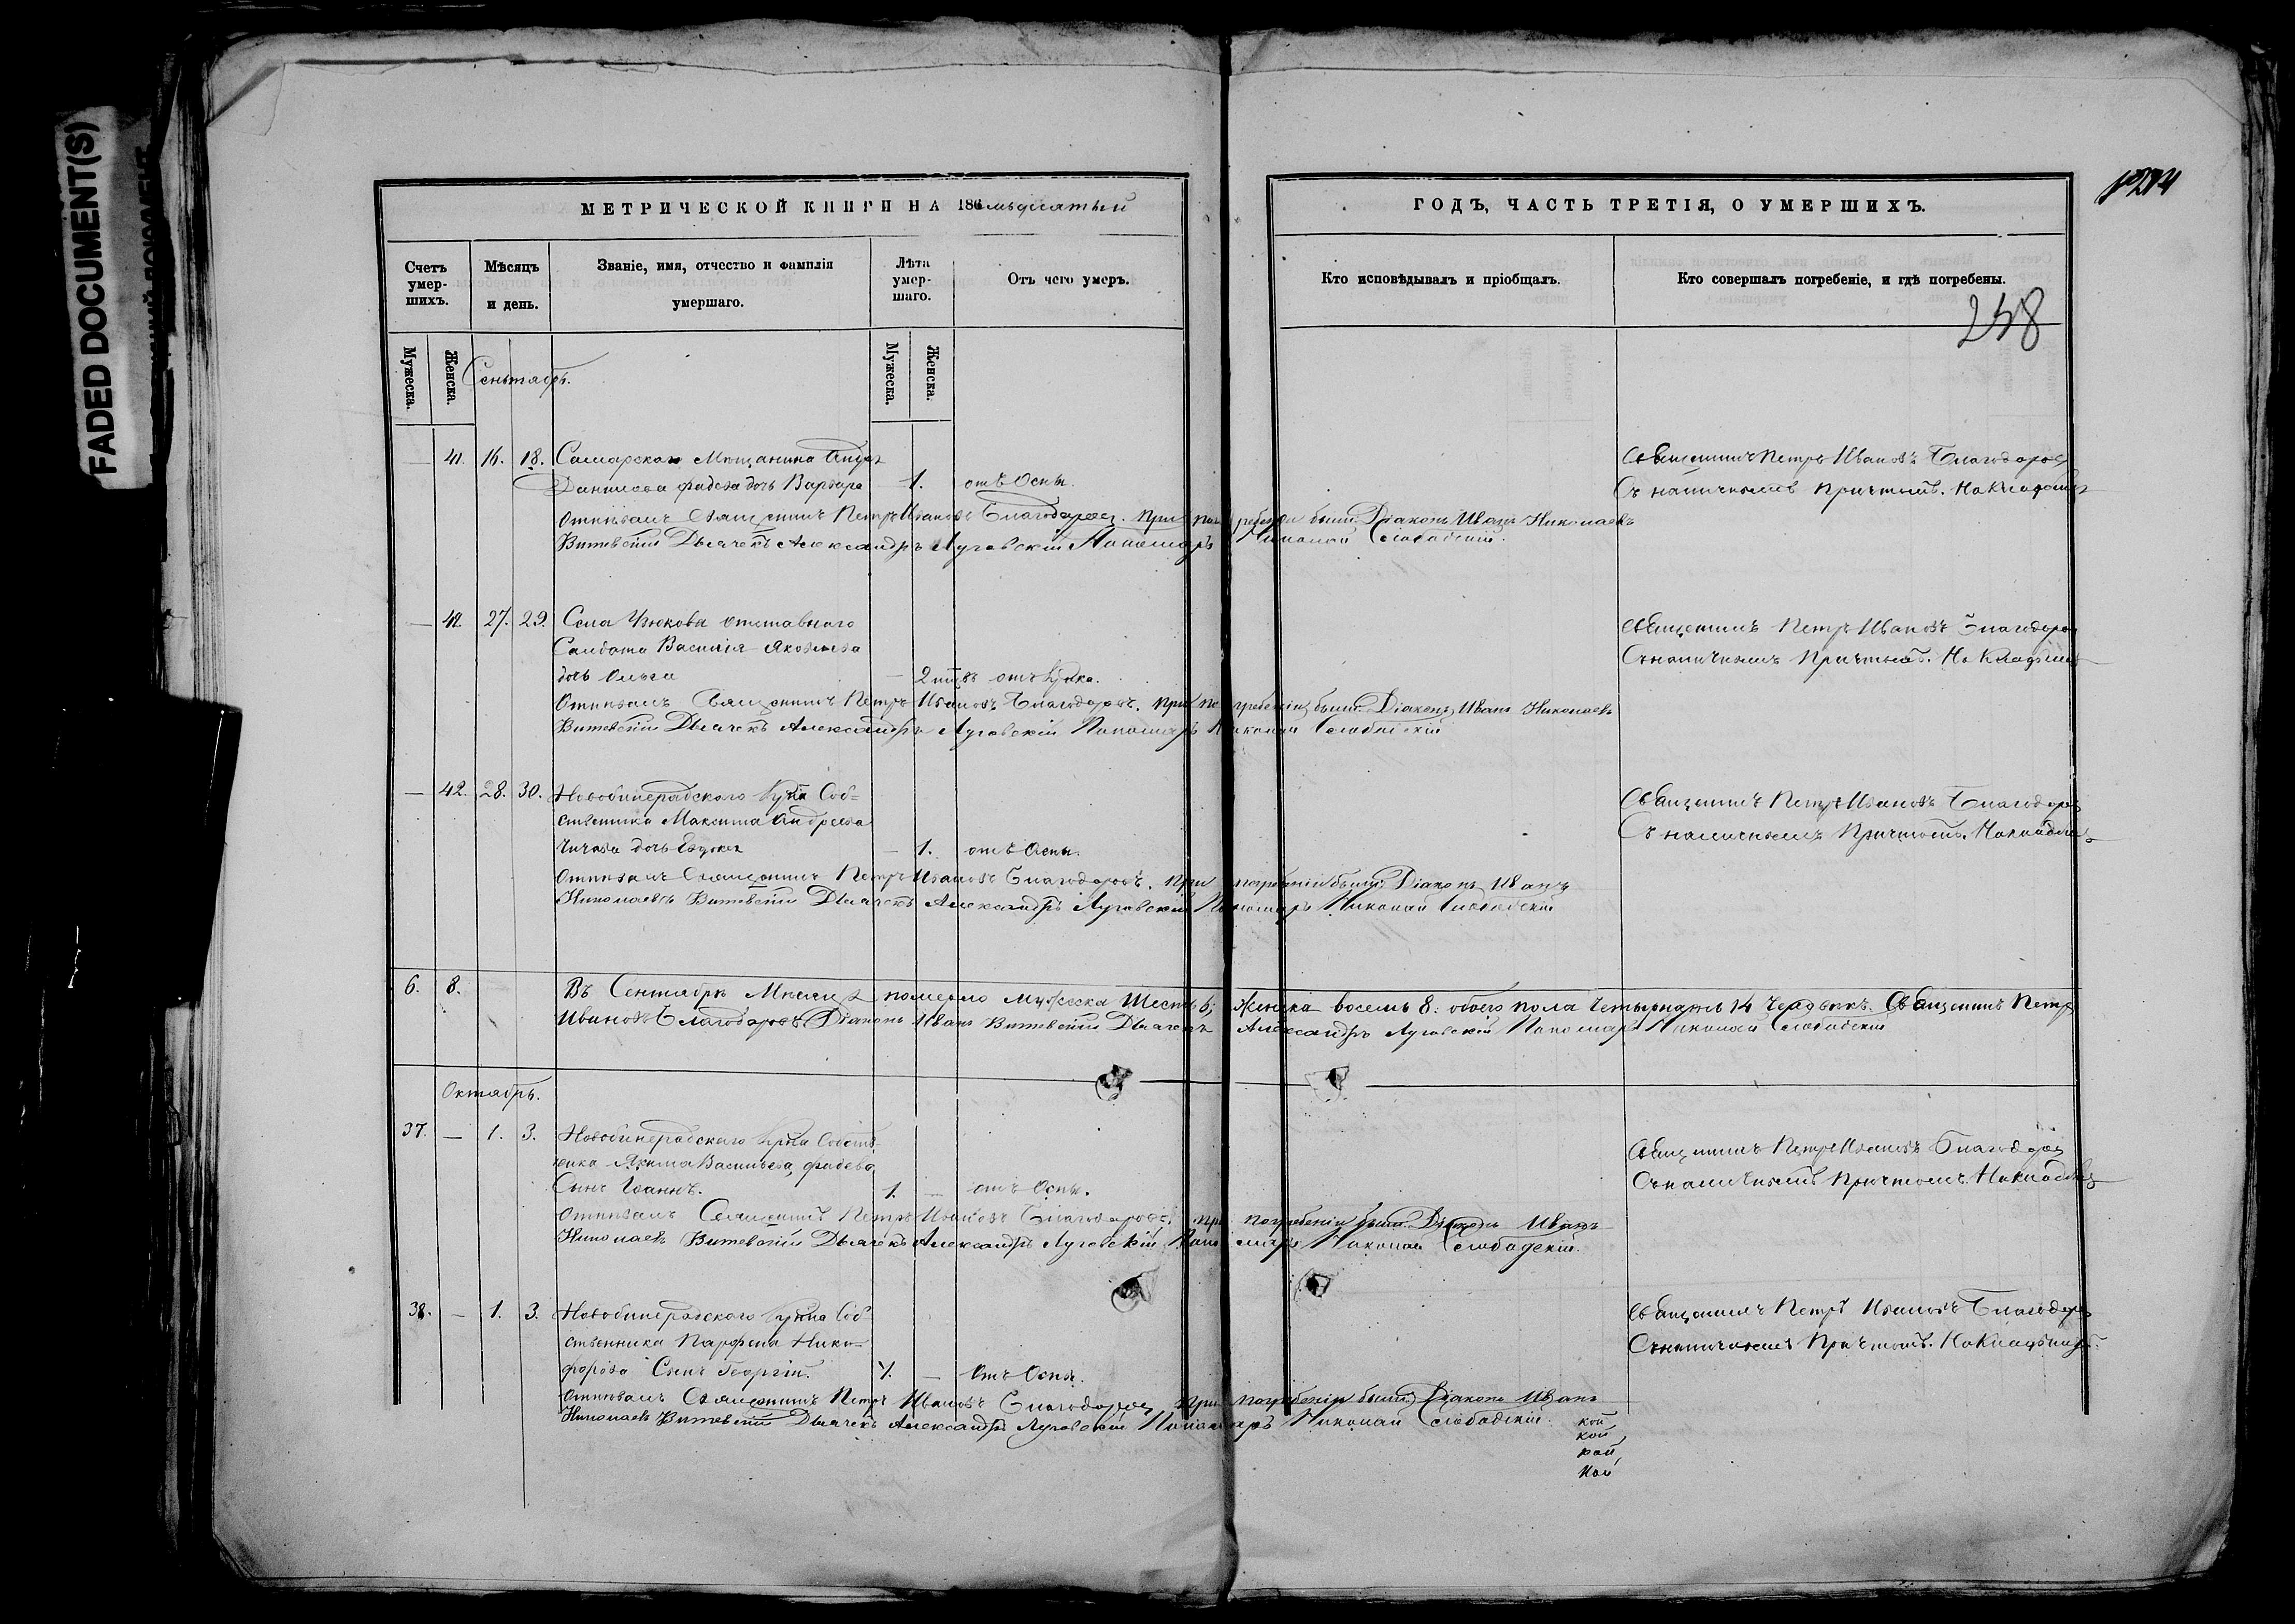 FADED DOCUMENT(S)
МЕТРИЧЕСКОЙ КНИГИ НА 186
ГОДЪ, ЧАСТЬ ТРЕТІЯ, О УМЕРШИХЪ.
Счетъ умер-шихъ.
Мѣсяцъ и день.
Званіе, имя, отчество и фамилія умершаго.
Лѣта умер-шаго.
Отъ чего умеръ.
Кто исповѣдывалъ и пріобщалъ.
Кто совершалъ погребеніе, и гдѣ погребены.
258
Мужеска.
Женска.
Мужеска.
Женска.
Сентябрь.
— 41. 16. 18. Самарскаго Мѣщанина
Данилова дочь Варвара 1. отъ Оспы.
Священникъ Петръ Ивановъ Благодаровъ
Съ наличнымъ Причтомъ. На Кладбищѣ
Отпѣвалъ Священникъ Петръ Ивановъ Благодаровъ. При погребеніи были Діаконъ Иванъ Николаевъ
Витевскій Дьячекъ Александръ Луговскій Пономарь Николай Слободскій.
— 27. 29. Села отставнаго
Солдата Василія Яковлева
дочь Ольга —
Священникъ Петръ Ивановъ Благодаровъ
Съ наличнымъ Причтомъ. На Кладбищѣ
Отпѣвалъ Священникъ Петръ Ивановъ Благодаровъ. При погребеніи были Діаконъ Иванъ Николаевъ
Витевскій Дьячекъ Александръ Луговскій Пономарь Николай Слободскій
— 42. 28. 30. Соб=
ственника Максима Андреева
дочь — 1. отъ Оспы.
Священникъ Петръ Ивановъ Благодаровъ
Съ наличнымъ Причтомъ. На кладбищѣ
Отпѣвалъ Священникъ Петръ Ивановъ Благодаровъ. При погребеніи были Діаконъ Иванъ
Николаевъ Витевскій Дьячекъ Александръ Луговскій Пономарь Николай Слободскій
6. 8. Въ Сентябрѣ Мѣсяцѣ померло мужеска Шесть 6; женска восемь 8: обоего пола 14 Священникъ Петръ
Ивановъ Благодаровъ Діаконъ Иванъ Витевскій Дьячекъ Александръ Луговскій Пономарь Николай Слободскій
Октябрь.
37. — 1. 3.
Якима Васильева
Сынъ Іоаннъ. 1. — отъ Оспы.
Священникъ Петръ Ивановъ Благодаровъ
Съ наличнымъ Причтомъ. На кладбищѣ
Отпѣвалъ Священникъ Петръ Ивановъ Благодаровъ, при погребеніи были Діаконъ Иванъ
Николаевъ Витевскій Дьячекъ Александръ Луговскій Пономарь Николай Слободскій.
38. — 1. 3. Соб
ственника Парфена Ники-
форова Сынъ Георгій. — Отъ Оспы.
Священникъ Петръ Ивановъ Благодаровъ
Съ наличнымъ Причтомъ. На Кладбищѣ.
Отпѣвалъ Священникъ Петръ Ивановъ Благодаровъ, при погребеніи были Діаконъ Иванъ
Николаевъ Витевскій Дьячекъ Александръ Луговскій Пономарь Николай Слободскій.